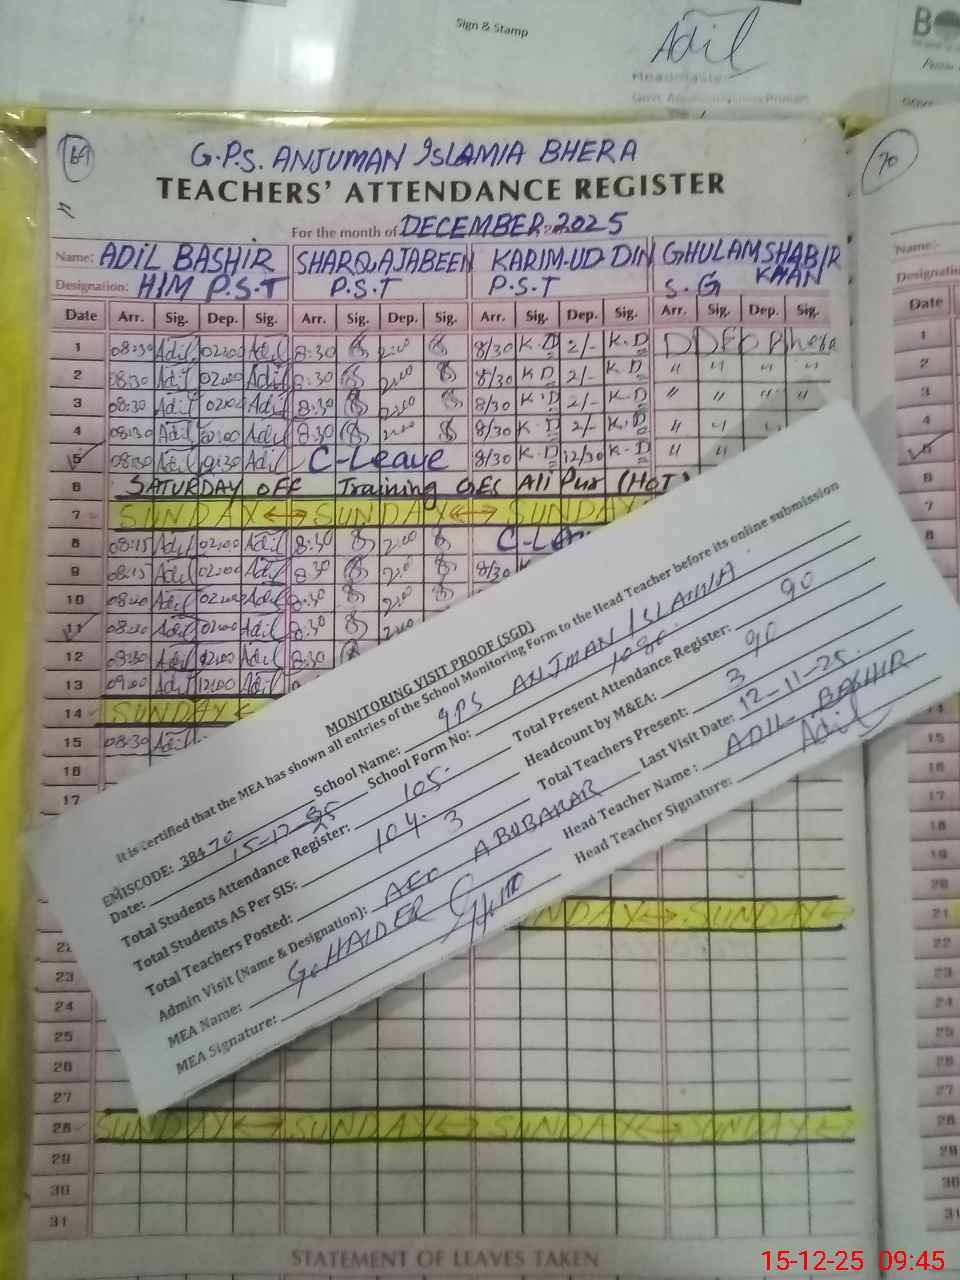 Sign & Stamp
Adil
Headmaster
69
70
G.P.S. ANJUMAN ISLAMIA BHERA
TEACHERS' ATTENDANCE REGISTER
For the month of DECEMBER 2025
Name: ADIL BASHIR SHARQA JABEEN KARIM-UD-DIN GHULAM SHABIR KHAN
Designation: H/M P.S.T P.S.T P.S.T S.G
Date Arr. Sig. Dep. Sig. Arr. Sig. Dep. Sig. Arr. Sig. Dep. Sig. Arr. Sig. Dep. Sig.
1 08:30 Adil 02:00 Adil 8:30 2:00 8/30 K.D 2/- K.D
2 08:30 Adil 02:00 Adil 8:30 2:00 8/30 K.D 2/- K.D " " " "
3 08:30 Adil 02:00 Adil 8:30 2:00 8/30 K.D 2/- K.D " " " "
4 08:30 Adil 02:00 Adil 8:30 2:00 8/30 K.D 2/- K.D " " "
5 08:30 Adil 12:30 Adil C-Leave 8/30 K.D 12/30 K.D " "
6 SATURDAY OFF Training GES Ali Pur (HOT)
7 SUNDAY SUNDAY SUNDAY
8 08:15 Adil 02:00 Adil 8:30 2:00
9 08:15 Adil 02:00 Adil 8:30 2:00 8/30
10 Adil Adil 8:30 2:00
11 Adil Adil 8:30 2:00
12 08:30 Adil 12:00 Adil 8:30
13 09:00 Adil 12:00 Adil
14 SUNDAY
15 08:30 Adil
16
17
MONITORING VISIT PROOF (SGD)
It is certified that the MEA has shown all entries of the School Monitoring Form to the Head Teacher before its online submission
EMISCODE: 38470 School Name: GPS ANJMAN ISLAMIA
Date: 15-12-25 School Form No:
Total Students Attendance Register: 105 Total Present Attendance Register: 90
Total Students AS Per SIS: 104 Headcount by M&EA: 90
Total Teachers Posted: 3 Total Teachers Present: 3
Admin Visit (Name & Designation): AEO ABUBAKAR Last Visit Date: 12-11-25
MEA Name: G. HAIDER Head Teacher Name: ADIL BASHIR
MEA Signature: Head Teacher Signature: Adil
21 SUNDAY SUNDAY
22
23
24
25
26
27
28 SUNDAY SUNDAY SUNDAY SUNDAY
29
30
31
STATEMENT OF LEAVES TAKEN
Name:-
Date
1
2
3
4
6
7
8
9
10
11
12
13
15
16
17
18
19
20
21
22
23
24
25
26
27
28
29
30
31
15-12-25 09:45